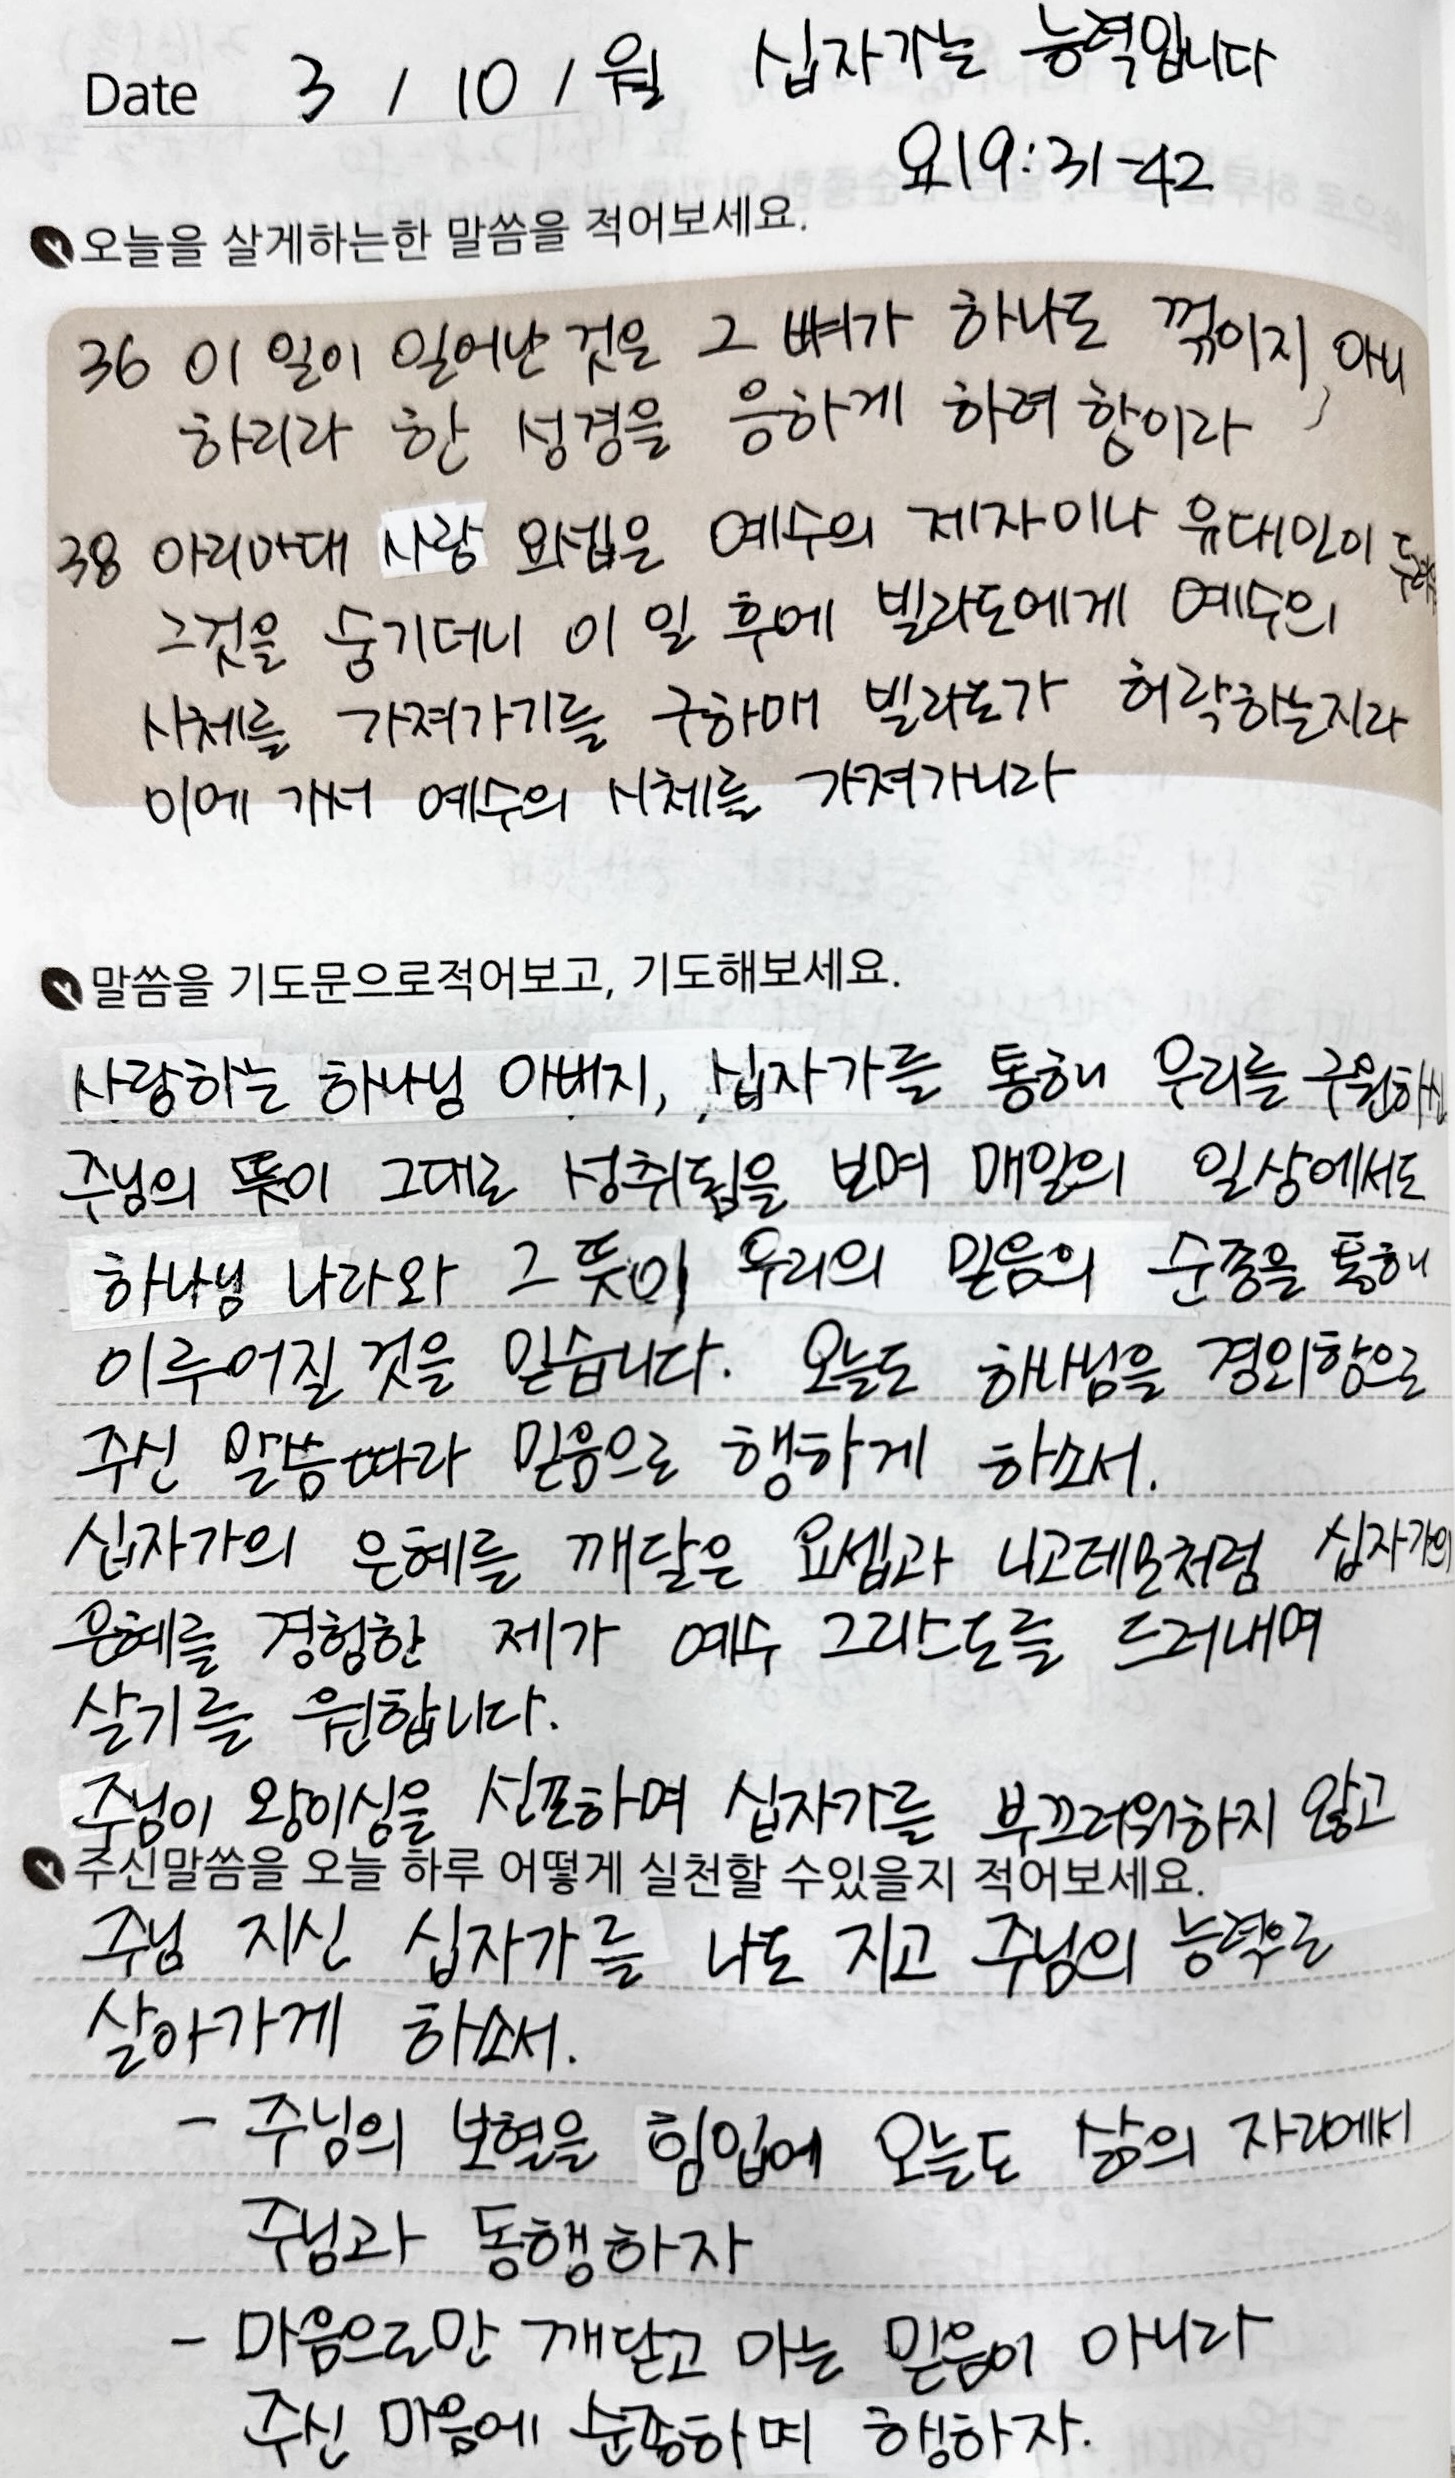 Date 3 / 10 / 월 십자가는 능력입니다
요19:31-42
오늘을 살게하는한 말씀을 적어보세요.
36 이 일이 일어난 것은 그 뼈가 하나도 꺾이지 아니
하리라 한 성경을 응하게 하려 함이라
38 아리마대 사람 요셉은 예수의 제자이나 유대인이
그것을 숨기더니 이 일 후에 빌라도에게 예수의
시체를 가져가기를 구하매 빌라도가 허락하는지라
이에 가서 예수의 시체를 가져가니라
말씀을 기도문으로적어보고, 기도해보세요.
사랑하는 하나님 아버지, 십자가를 통해 우리를 구원하신
주님의 뜻이 그대로 성취됨을 보며 매일의 일상에서도
하나님 나라와 그 뜻이 우리의 믿음의 순종을 통해
이루어질 것을 믿습니다. 오늘도 하나님을 경외함으로
주신 말씀따라 믿음으로 행하게 하소서.
십자가의 은혜를 깨달은 요셉과 니고데모처럼 십자가의
은혜를 경험한 제가 예수 그리스도를 드러내며
살기를 원합니다.
주님이 왕이심을 선포하며 십자가를 부끄러워하지 않고
주신말씀을 오늘 하루 어떻게 실천할 수있을지 적어보세요.
주님 지신 십자가를 나도 지고 주님의 능력으로
살아가게 하소서.
- 주님의 보혈을 힘입에 오늘도 삶의 자리에서
주님과 동행하자
- 마음으로만 깨닫고 마는 믿음이 아니라
주신 마음에 순종하며 행하자.